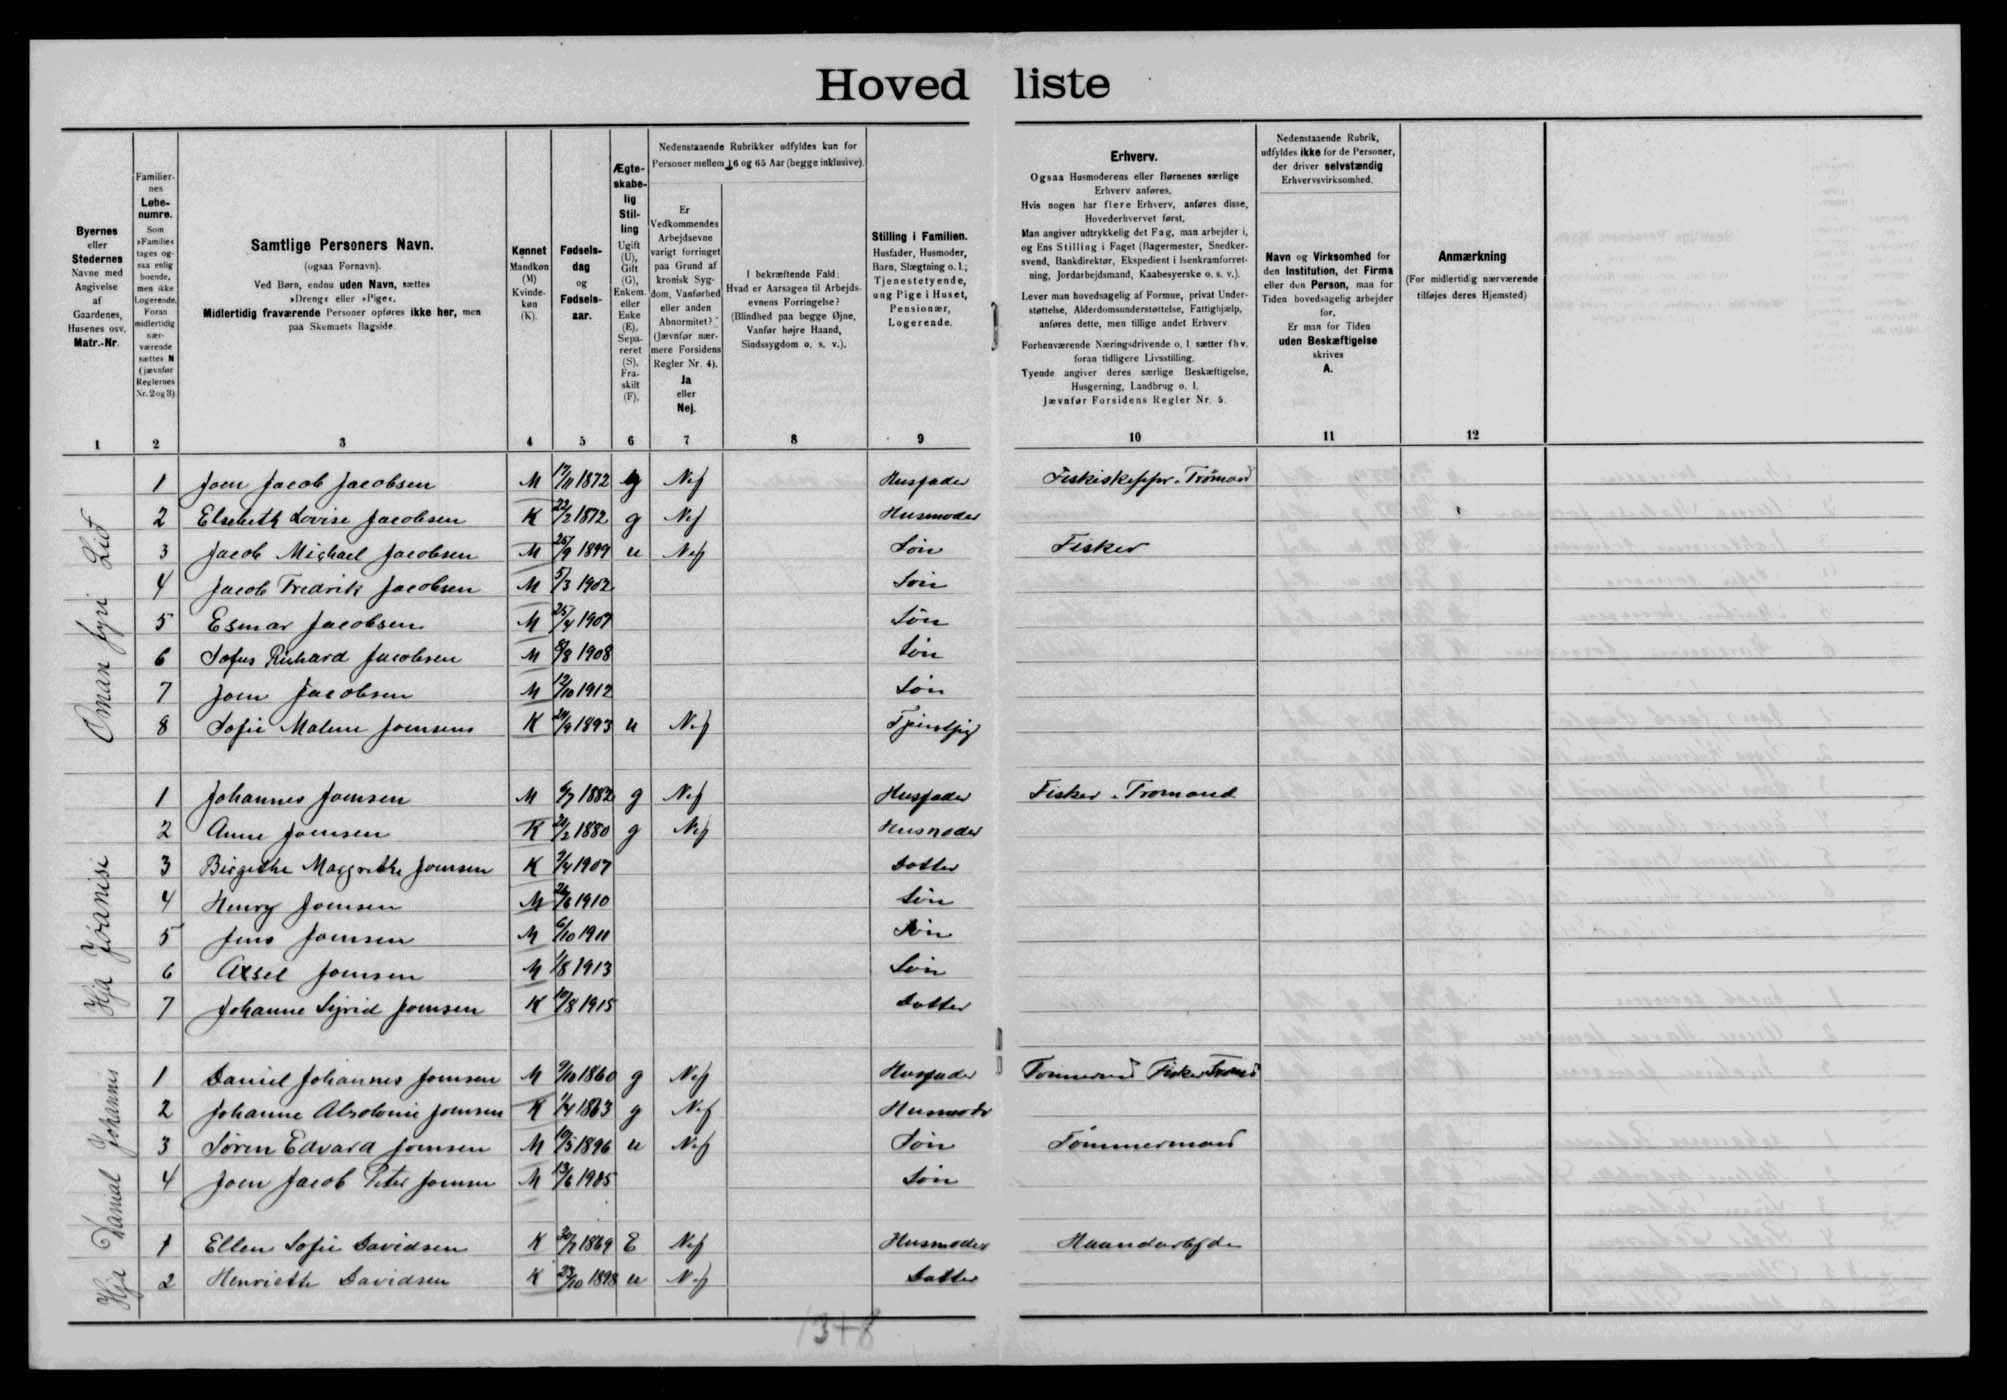 Hoved liste
Byernes
eller
Stedernes
Navne med
Angivelse
af
Gaardenes,
Husenes osv.
Matr.-Nr.
Familier-
nes
Løbe-
numre.
Som
»Familie«
tages og-
saa enlig
boende,
men ikke
Logerende.
Foran
midlertidig
nær-
værende
sættes N
(jævnfør
Reglernes
Nr. 2 og 3)
Samtlige Personers Navn.
(ogsaa Fornavn).
Ved Børn, endnu uden Navn, sættes
»Dreng« eller »Pige«.
Midlertidig fraværende Personer opføres ikke her, men
paa Skemaets Bagside.
Kønnet
Mandkøn
(M)
Kvinde-
køn
(K).
Fødsels-
dag
og
Fødsels-
aar.
Ægte-
skabe-
lig
Stil-
ling
Ugift
(U),
Gift
(G),
Enkem.
eller
Enke
(E),
Sepa-
reret
(S),
Fra-
skilt
(F).
Nedenstaaende Rubrikker udfyldes kun for
Personer mellem 16 og 65 Aar (begge inklusive).
Er
Vedkommendes
Arbejdsevne
varigt forringet
paa Grund af
kronisk Syg-
dom, Vanførhed
eller anden
Abnormitet?
(Jævnfør nær-
mere Forsidens
Regler Nr. 4).
Ja
eller
Nej.
I bekræftende Fald:
Hvad er Aarsagen til Arbejds-
evnens Forringelse?
(Blindhed paa begge Øjne,
Vanfør højre Haand,
Sindssygdom o. s. v.).
Stilling i Familien.
Husfader, Husmoder,
Barn, Slægtning o. l.;
Tjenestetyende,
ung Pige i Huset,
Pensionær,
Logerende.
Erhverv.
Ogsaa Husmoderens eller Børnenes særlige
Erhverv anføres.
Hvis nogen har flere Erhverv, anføres disse,
Hovederhvervet først.
Man angiver udtrykkelig det Fag, man arbejder i,
og Ens Stilling i Faget (Bagermester, Snedker-
svend, Bankdirektør, Ekspedient i Isenkramforret-
ning, Jordarbejdsmand, Kaabesyerske o. s. v.).
Lever man hovedsagelig af Formue, privat Under-
støttelse, Alderdomsunderstøttelse, Fattighjælp,
anføres dette, men tillige andet Erhverv
Forhenværende Næringsdrivende o. l. sætter fhv.
foran tidligere Livsstilling.
Tyende angiver deres særlige Beskæftigelse,
Husgerning, Landbrug o. l.
Jævnfør Forsidens Regler Nr. 5.
Nedenstaaende Rubrik,
udfyldes ikke for de Personer,
der driver selvstændig
Erhvervsvirksomhed.
Navn og Virksomhed for
den Institution, det Firma
eller den Person, man for
Tiden hovedsagelig arbejder
for.
Er man for Tiden
uden Beskæftigelse
skrives
A.
Anmærkning
(For midlertidig nærværende
tilføjes deres Hjemsted)
1 2 3 4 5 6 7 8 9 10 11 12
Oman fyri
1 Joen Jacob Jacobsen M 17/11 1872 g Nej Husfader
2 Elsebeth Lovise Jacobsen K 22/2 1872 g Nej Husmoder
3 Jacob Michael Jacobsen M 25/9 1899 u Nej Søn Fisker
4 Jacob Fredrik Jacobsen M 5/3 1902 Søn
5 Esmar Jacobsen M 25/4 1907 Søn
6 Sofus Richard Jacobsen M 8/8 1908 Søn
7 Joen Jacobsen M 12/10 1912 Søn
8 Sofie Malene Joensens K 1893 u Nej
Hja Jóanisi
1 Johannes Joensen M 6/7 1882 g Nej Husfader Fisker. Tromand
2 Anne Joensen K 1880 g Nej Husmoder
3 Birgithe Margrethe Joensen K 1907 Dotter
4 Henry Joensen M 1910 Søn
5 Jens Joensen M 6/10 1911 Søn
6 Axsel Joensen M 1/8 1913 Søn
7 Johanne Sigrid Joensen K 10/8 1915 Dotter
Hja Danial Johannis
1 Daniel Johannes Joensen M 9/10 1860 g Nej Husfader
2 Johanne Absolonie Joensen K 1/4 1863 g Nej Husmoder
3 Søren Edvard Joensen M 10/5 1896 u Nej Søn Tømmermand
4 Joen Jacob Peter Joensen M 13/6 1905 Søn
1 Ellen Sofie Davidsen K 30/7 1869 E Nej Husmoder
2 Henriette Davidsen K 23/10 1898 u Nej Datter
13+8